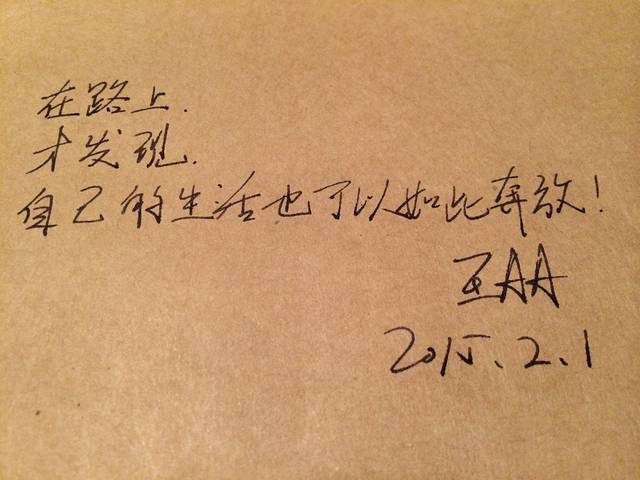 在路上.
才发现.
自己的生活也可以如此奔放!
王AA
2015.2.1